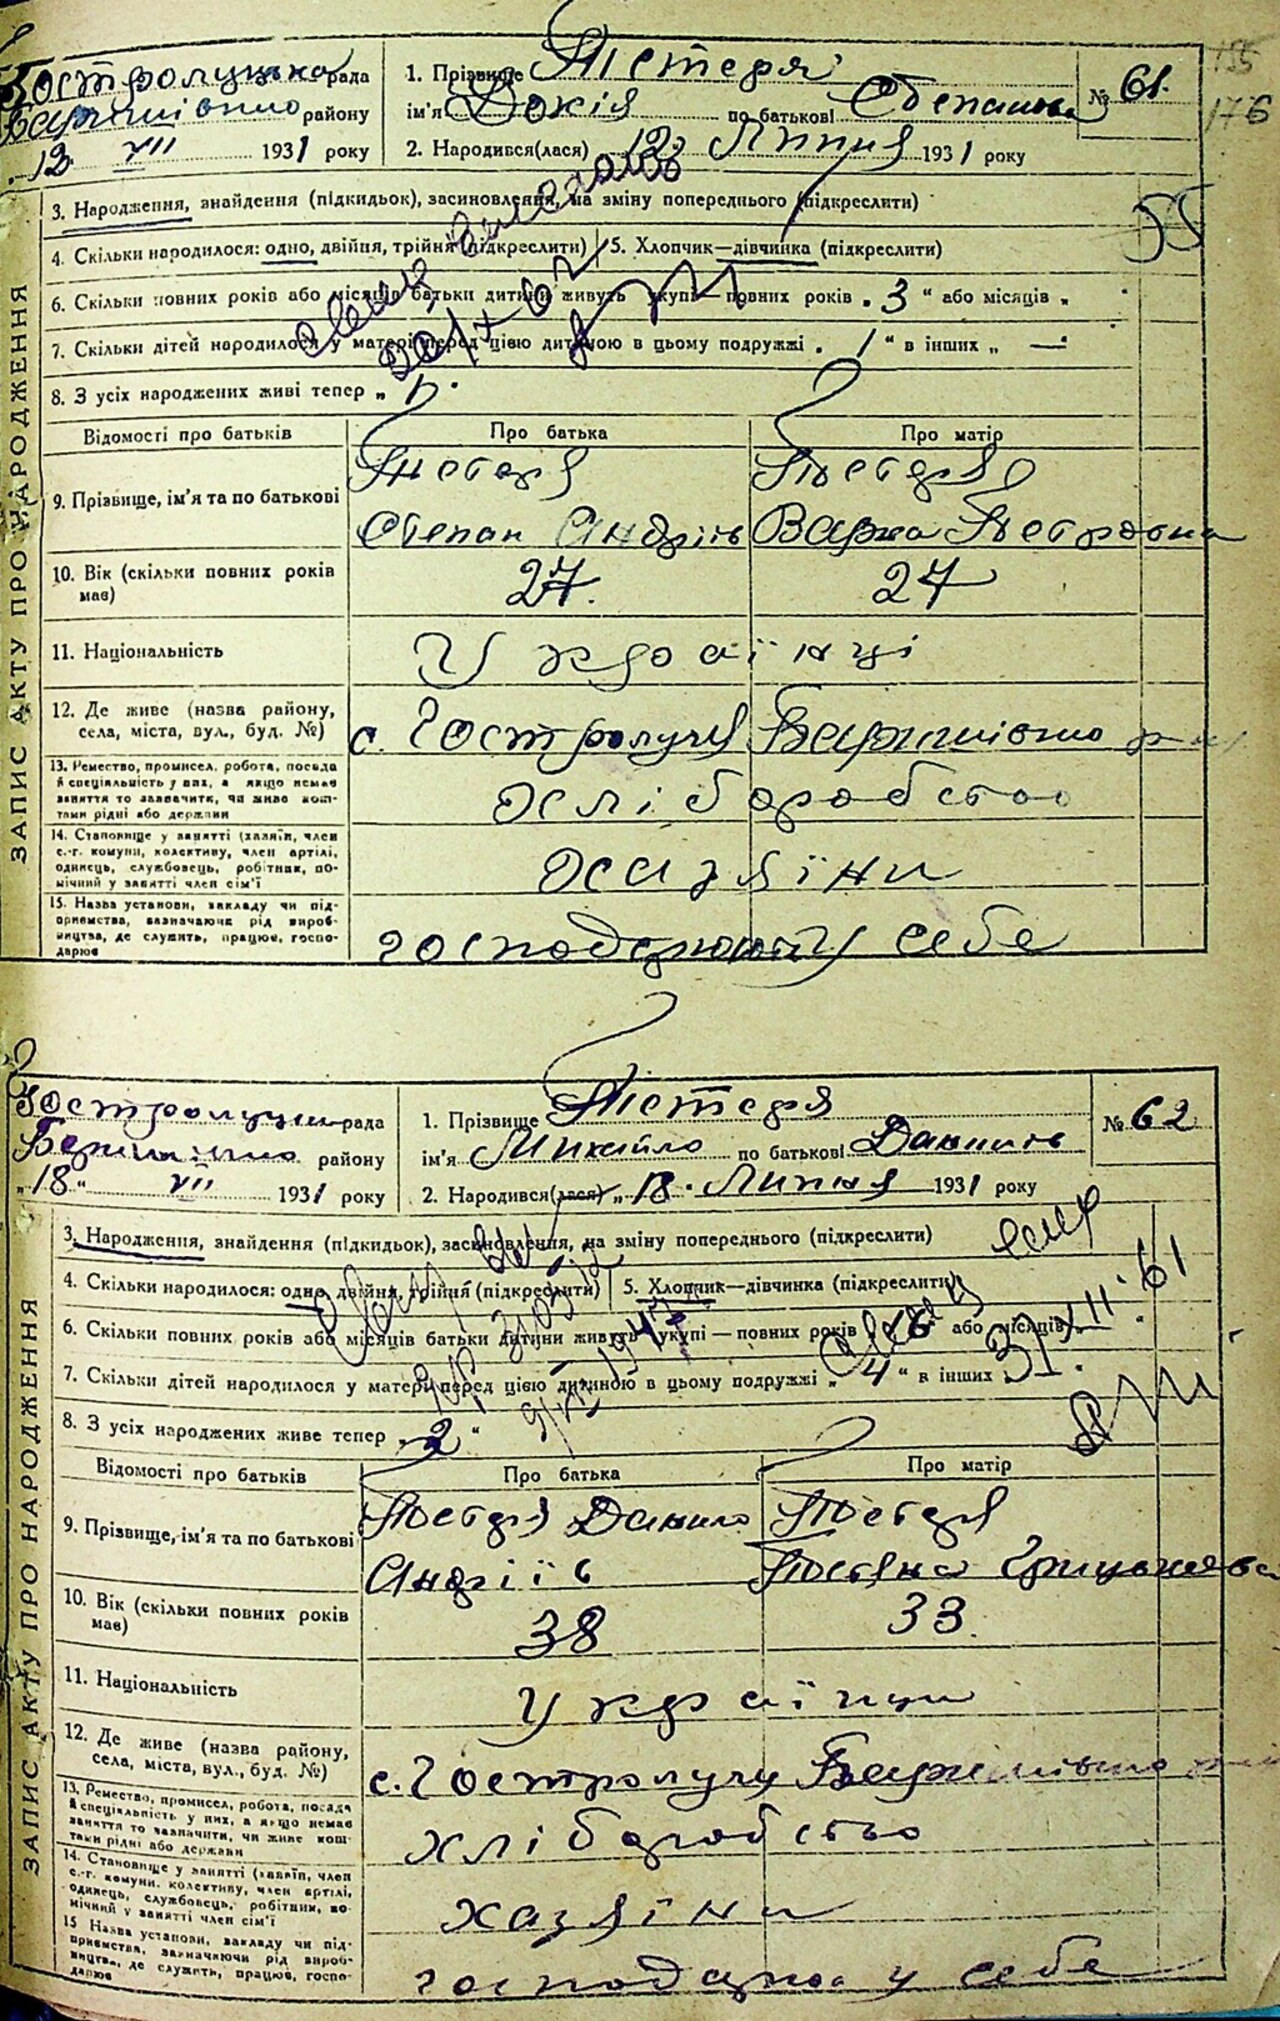 155
176
Гостролуцька рада
Баришівського району
12 VII 1931 року
1. Прізвище Пістеря
ім'я Докія по батькові Степанівна
2. Народився(лася) 12 Липня 1931 року
№ 61.
ЗАПИС АКТУ ПРО НАРОДЖЕННЯ
3. Народження, знайдення (підкидьок), засиновлення, на зміну попереднього (підкреслити)
4. Скільки народилося: одно, двійня, трійня (підкреслити) 5. Хлопчик—дівчинка (підкреслити)
6. Скільки повних років або місяців батьки дитини живуть укупі—повних років „ 3 “ або місяців „
7. Скільки дітей народилося у матері перед цією дитиною в цьому подружжі „ 1 “ в інших „ — “
8. З усіх народжених живі тепер „
Відомості про батьків Про батька Про матір
9. Прізвище, ім'я та по батькові
Пістеря
Степан Андріїв
Пістеря
Варка Петровна
10. Вік (скільки повних років має) 27. 27
11. Національність Українці
12. Де живе (назва району, села, міста, вул., буд. №) с. Гостролуччя Баришівського
13. Ремество, промисел, робота, посада
й спеціальність у них, а якщо немає
заняття то зазначити, чи живе кош-
тами рідні або держави
хліборобство
14. Становище у занятті (хазяїн, член
с.-г. комуни, колективу, член артілі,
одинець, службовець, робітник, по-
мічний у занятті член сім'ї
хазяїни
15. Назва установи, закладу чи під-
приємства, зазначаючи рід вироб-
ництва, де служить, працює, госпо-
дарює
господарюють у себе
Гостролуцька рада
району
„18“ VII 1931 року
1. Прізвище Пістеря
ім'я Михайло по батькові Данилів
2. Народився(лася) „ 18. Липня 1931 року
№ 62
ЗАПИС АКТУ ПРО НАРОДЖЕННЯ
3. Народження, знайдення (підкидьок), засиновлення, на зміну попереднього (підкреслити)
4. Скільки народилося: одно, двійня, трійня (підкреслити) 5. Хлопчик—дівчинка (підкреслити)
6. Скільки повних років або місяців батьки дитини живуть укупі — повних років 16 або місяців „
31 XII 61
7. Скільки дітей народилося у матері перед цією дитиною в цьому подружжі „ 4 “ в інших
8. З усіх народжених живе тепер „ 2 “
Відомості про батьків Про батька Про матір
9. Прізвище, ім'я та по батькові
Пістеря Данило
Андріїв
Пістеря
Тетяна Грицьківна
10. Вік (скільки повних років має) 38 33.
11. Національність Українци
12. Де живе (назва району, села, міста, вул., буд. №) с. Гостролуччу Баришівського
13. Ремество, промисел, робота, посада
й спеціальність у них, а якщо немає
заняття то зазначити, чи живе кош-
тами рідні або держави
хліборобство
14. Становище у занятті (хазяїн, член
с.-г. комуни, колективу, член артілі,
одинець, службовець, робітник, по-
мічний у занятті член сім'ї
хазяїни
15 Назва установи, закладу чи під-
приємства, зазначаючи рід вироб-
ництва, де служить, працює, госпо-
дарює
у себе